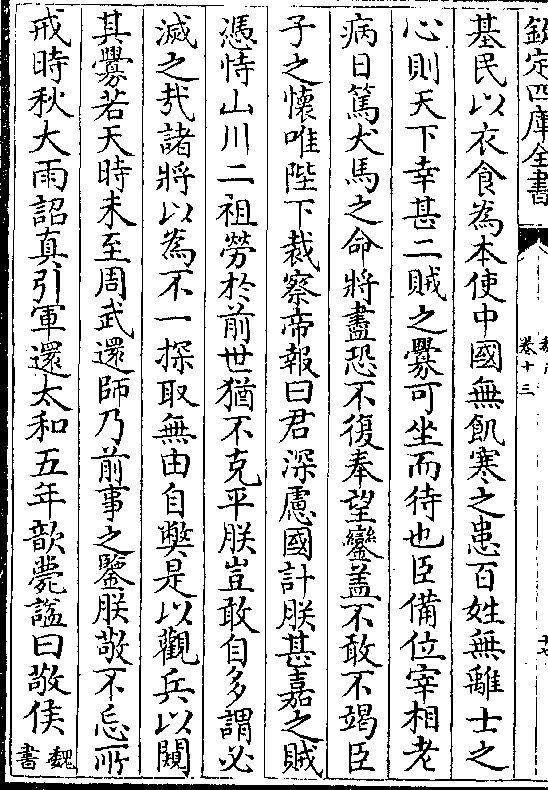 欽定四庫全書
卷十三
基民以衣食為本使中國無飢寒之患百姓無離士之
心則天下幸甚二賊之釁可坐而待也臣備位宰相老
病日篤犬馬之命將盡恐不復奉望鑾蓋不敢不竭臣
子之懷唯陛下裁察帝報曰君深慮國計朕甚嘉之賊
憑恃山川二祖勞於前世猶不克平朕豈敢自多謂必
滅之哉諸將以為不一探取無由自獘是以觀兵以闚
其釁若天時未至周武還師乃前事之鑒朕敬不忘所
戒時秋大雨詔真引軍還太和五年歆薨諡曰敬侯魏書